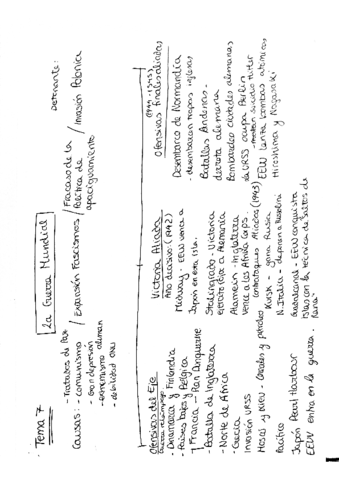 Tema 7
2a Guerra Mundial
Detonante:
Causas:
- Tratados de Paz
- comunismo
- gran depresión
- extremismo alemán
- debilidad ONU
/ Expansión Fascismos
/ Fracaso de la
Política de
apaciguamiento
/ Invasión Polonia
Ofensivas del Eje
Guerra relámpago
- Dinamarca y Finlandia
- Países bajos y Bélgica
- Francia
- Batalla de Inglaterra
- Norte de África
- Grecia
Invasión URSS
Pacífico
Japón Pearl Harbour
EEUU entra en la guerra.
Victoria Aliados
Año decisivo (1942)
Midway - EEUU vence a
Japón en esta isla.
Stalingrado - Victoria
ejército rojo a Alemania
Alamein - Inglaterra
vence a los Afrika Corps.
Contraataques Aliados (1943)
Kursk - gana Rusia
N. Italia -
Guadalcanal - EEUU conquista
islas con la técnica de saltos de
rana.
Ofensivas finales aliadas
(1944-1945)
Desembarco de Normandía
- desembarcan tropas inglesas
Batallas Ardenas -
derrota alemana
Bombardeo ciudades alemanas
La URSS ocupa Berlín
suicidio Hitler
EEUU lanza bombas atómicas
Hiroshima y Nagasaki